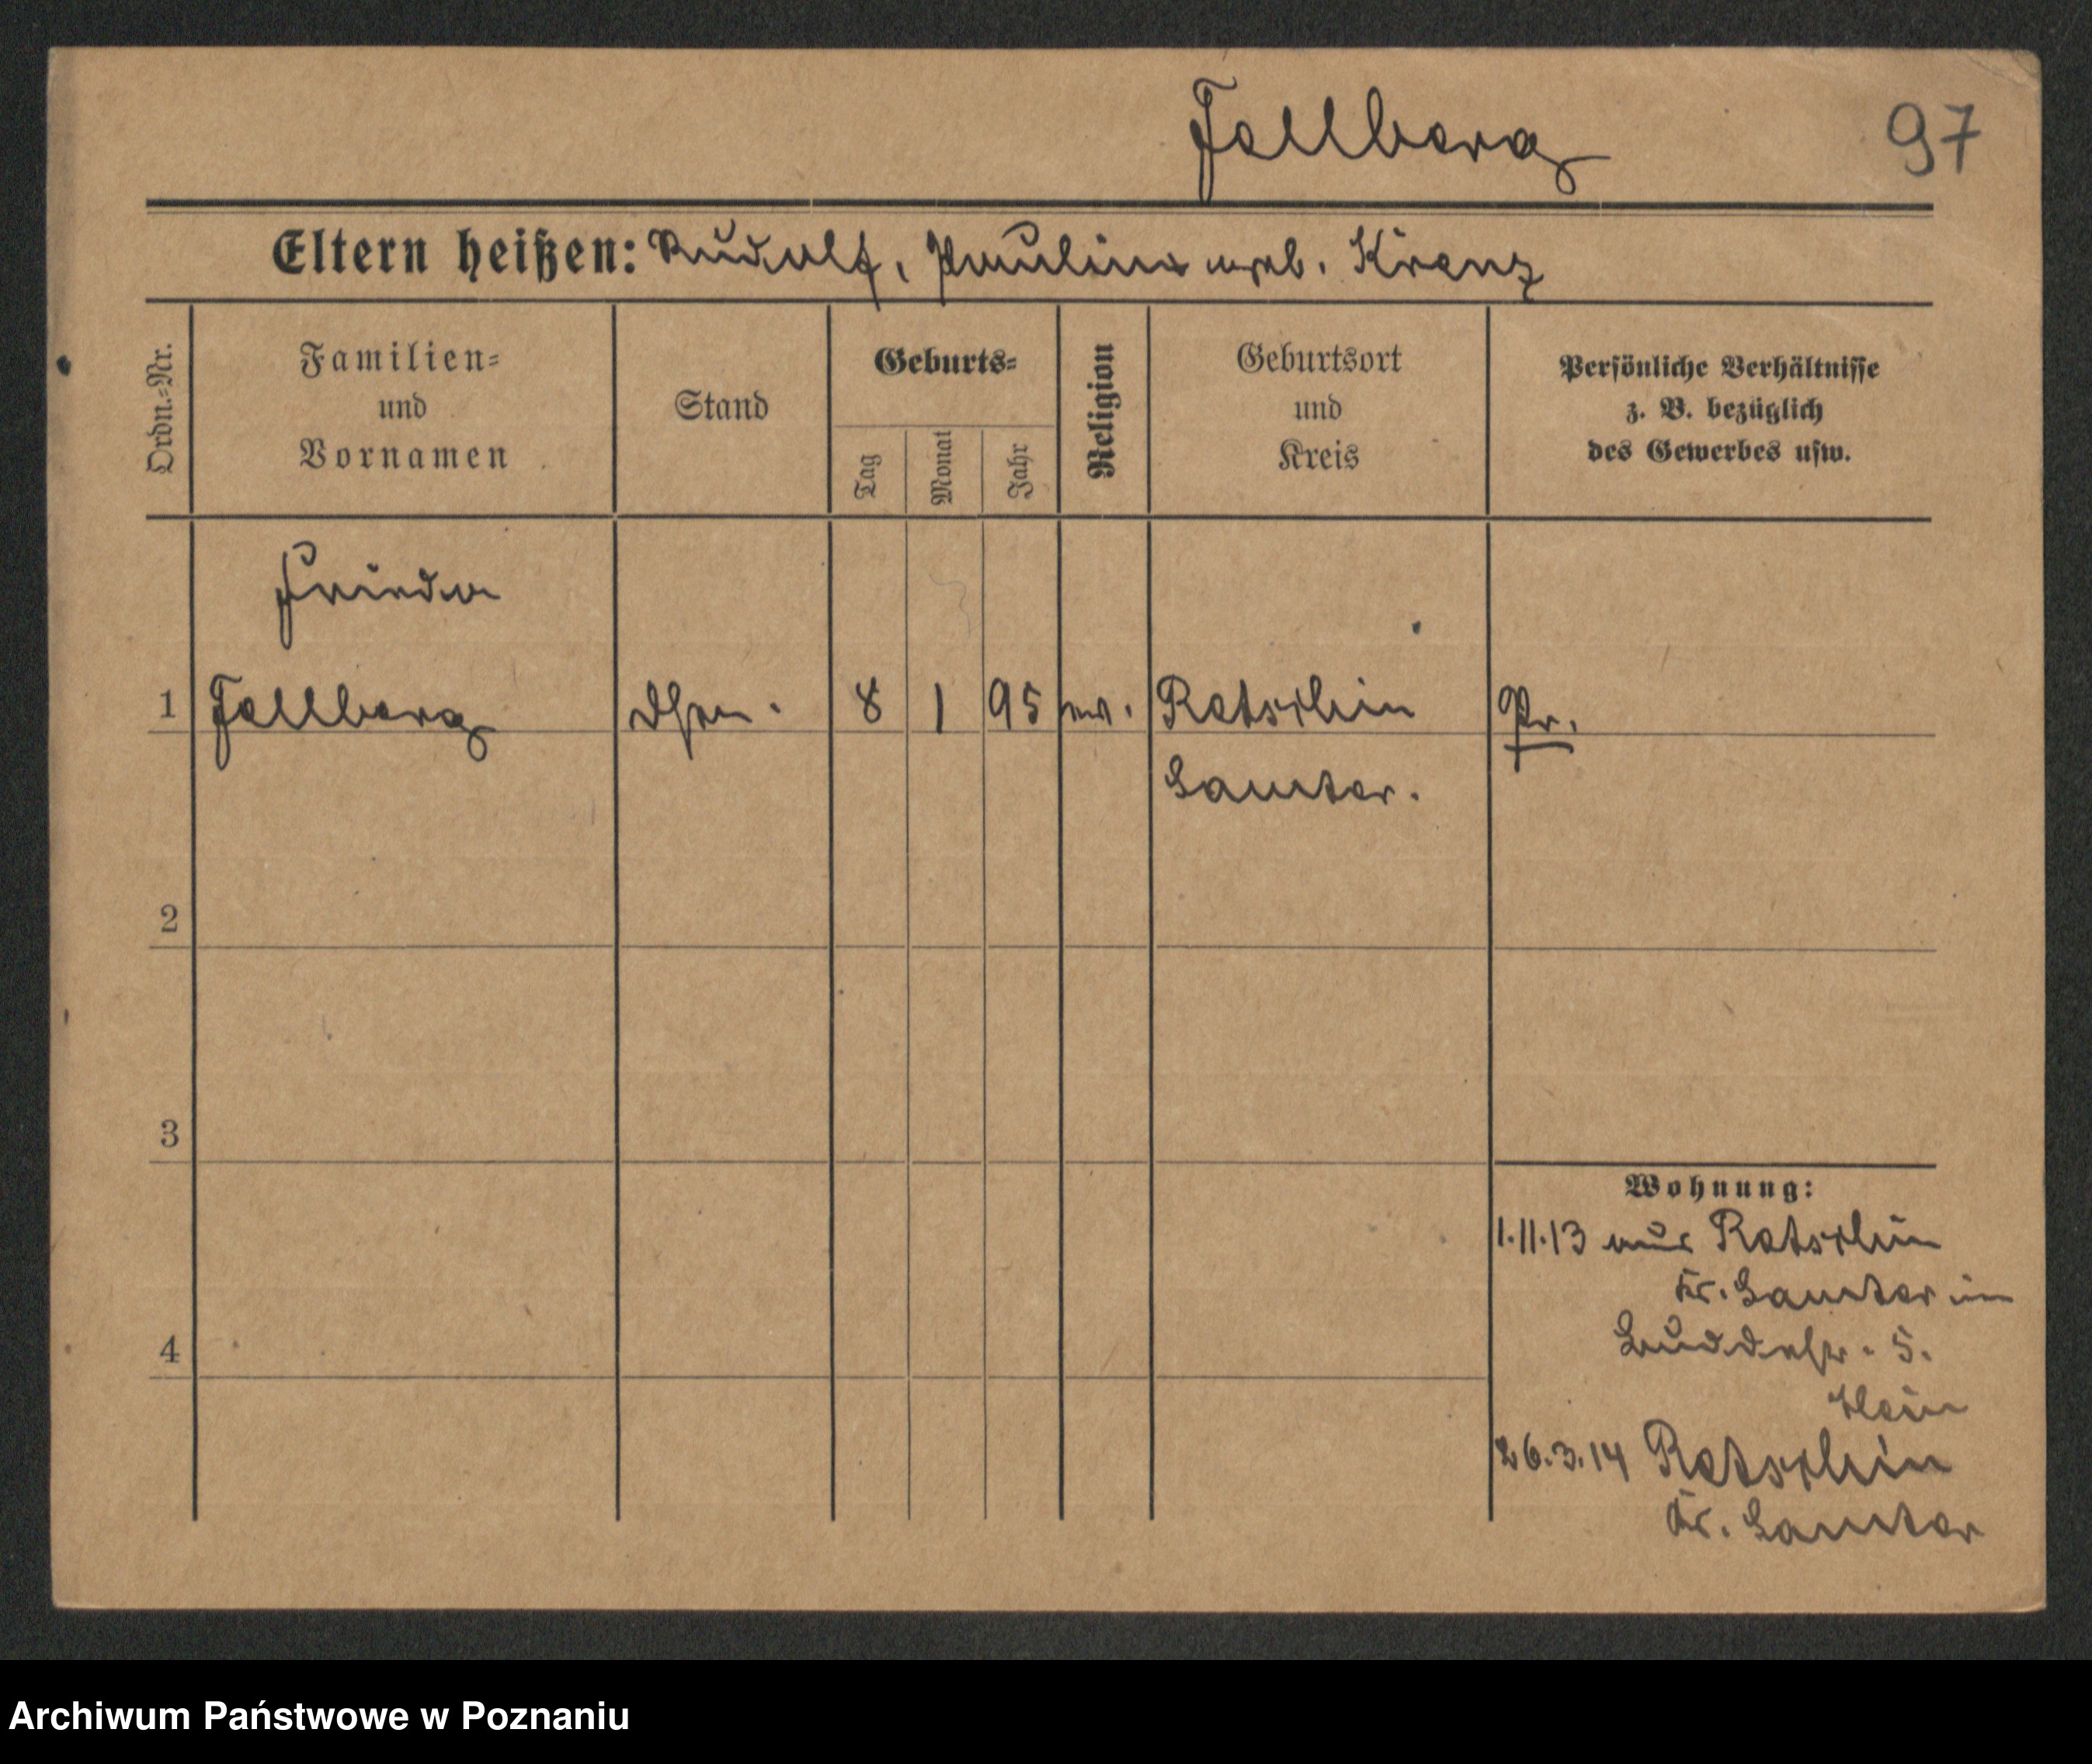 Fellberg
97
Eltern heißen: Rudolf, Pauline geb. Krenz
Ordn.-Nr.
Familien-
und
Vornamen
Stand
Geburts-
Tag
Monat
Jahr
Religion
Geburtsort
und
Kreis
Persönliche Verhältnisse
z. B. bezüglich
des Gewerbes usw.
Frieda
1 Fellberg 8 1 95 ev. Retschin Pr.
Samter.
2
3
4
Wohnung:
1.11.13 aus Retschin
Kr. Samter in
Buddestr. 5.
26.3.14 Retschin
Kr. Samter
Archiwum Państwowe w Poznaniu